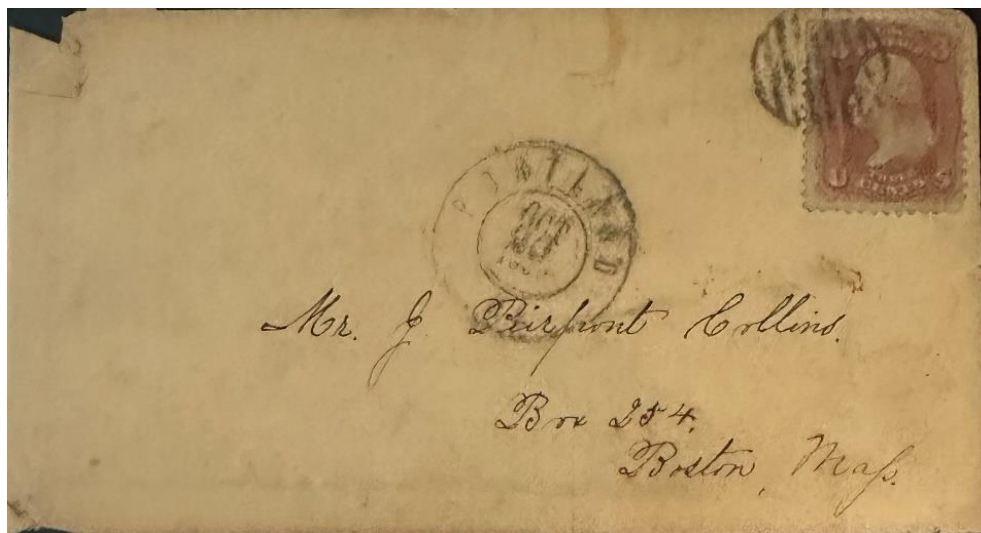 PORTLAND
OCT
Mr. J Peirpont Collins.
Box 254.
Boston, Mass.
U S